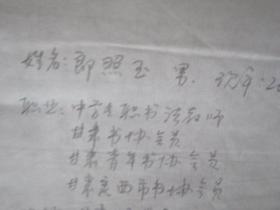 姓名: 郎照玉 男. 现年: 2
职业: 中学专职书法教师
甘肃书协会员
甘肃青年书协会员
甘肃定西市书协会员